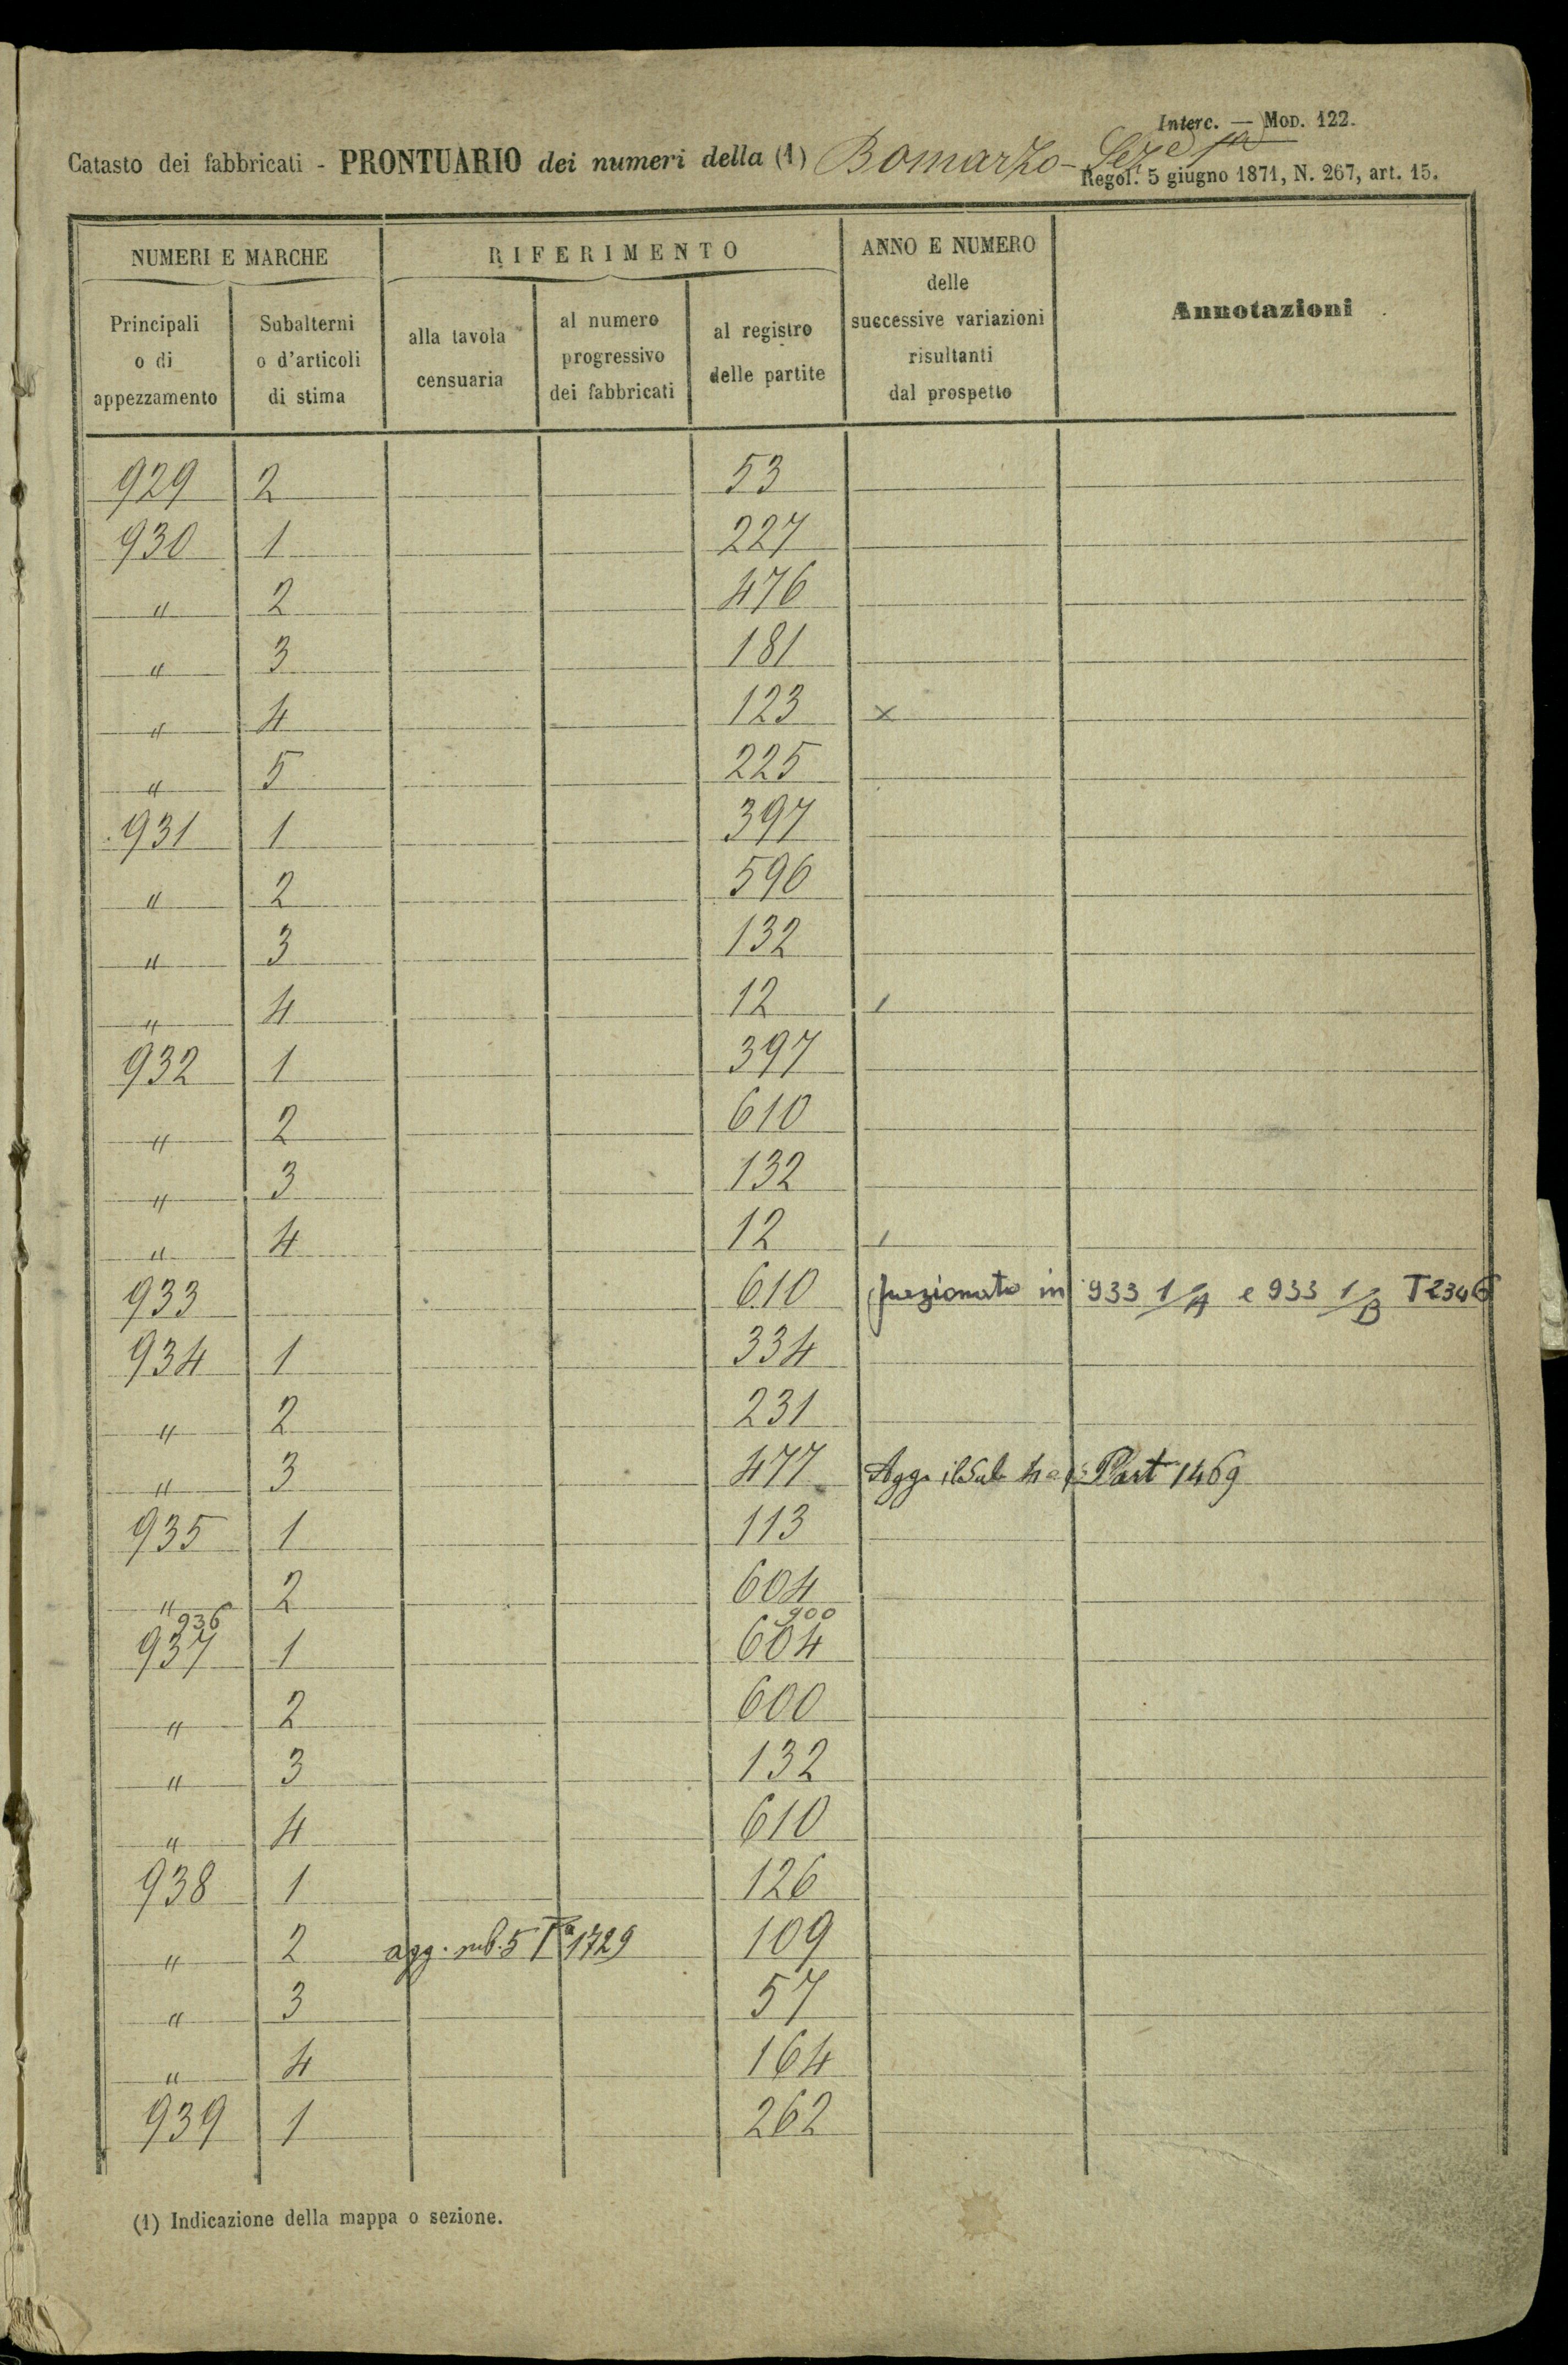 Interc. — Mod. 122.
Catasto dei fabbricati - PRONTUARIO dei numeri della (1) Bomarzo -
Regol. 5 giugno 1871, N. 267, art. 15.
NUMERI E MARCHE RIFERIMENTO ANNO E NUMERO delle successive variazioni risultanti dal prospetto Annotazioni
Principali o di appezzamento Subalterni o d'articoli di stima alla tavola censuaria al numero progressivo dei fabbricati al registro delle partite
929 2 53
930 1 227
" 2 476
" 3 181
" 4 123 x
" 5 225
931 1 397
" 2 596
" 3 132
" 4 12 /
932 1 397
" 2 610
" 3 132
" 4 12 /
933 610 frazionato in 933 1/A e 933 1/B T2346
934 1 334
" 2 231
" 3 477 Agg. il Sub 4 Part 1469
935 1 113
" 2 604
936 900
937 1 604
" 2 600
" 3 132
" 4 610
938 1 126
" 2 agg. sub. 5 Ta 1729 109
" 3 57
" 4 164
939 1 262
(1) Indicazione della mappa o sezione.